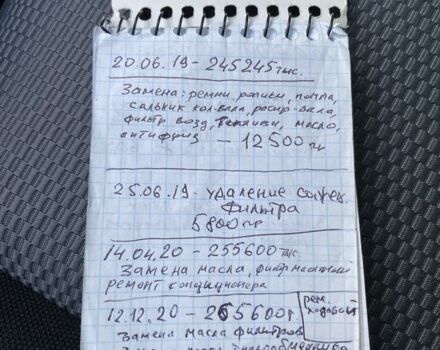 20.06.19 - 245245 тыс.
Замена: ремни, ролики, помпа,
сальник кол-вала, распр-вала,
фильтр возд, топливн, масло,
антифриз - 12500 гр
25.06.19. удаление сажев.
фильтра
5800 гр
14.04.20 - 255600 тыс.
Замена масла, фильтр масляный
ремонт кондиционера
12.12.20 - 265600 т.
рем.
ходовой
Замена масла фильтров